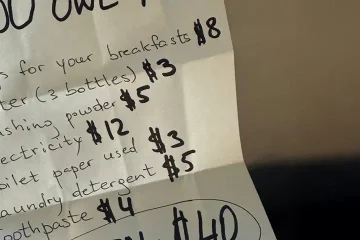 OU OWE
s for your breakfasts $8
ter (3 bottles) $3
ushing powder $5
ectricity $12
oilet paper used $3
aundry detergent $5
oothpaste $4
$40